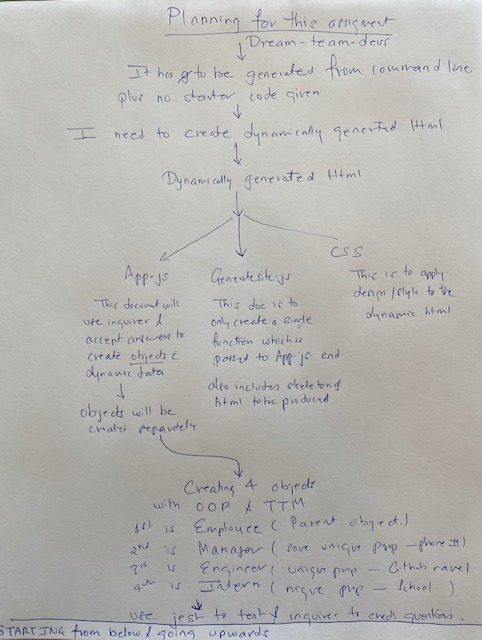 Planning for this assigment
Dream-team-devs
It has to be generated from command line
plus no starter code given
I need to create dynamically generated Html
Dynamically generated Html
App.js
This document will
use inquirer &
accept answers to
create objects &
dynamic data
objects will be
creates separately
Generatesite.js
This doc is to
only create a single
function which is
passed to App.js end
also includes skeleton of
html to be produced
CSS
This is to apply
design/style to the
dynamic html
Creating 4 objects
with OOP & TTM
1st is Employee ( Parent object.)
2nd is Manager ( unique prop - phone #)
3rd is Engineer ( unique prop - Github )
4th is Intern ( prop - School )
use jest to test & inquirer to questions.
STARTING from below & going upwards